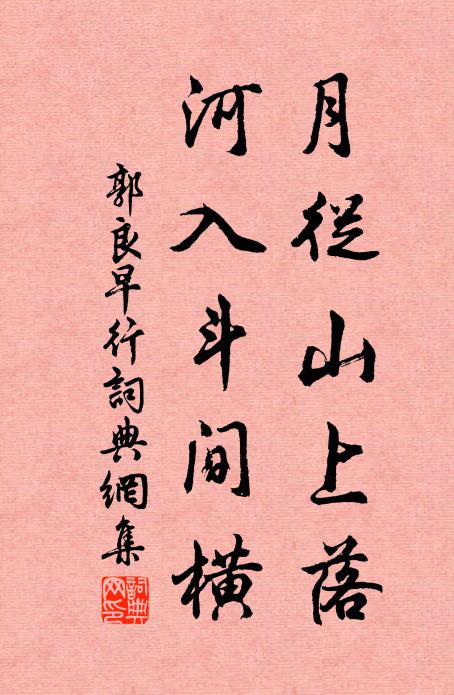 月從山上落
河入斗間橫
郭良早行詞典網集
詞典網印